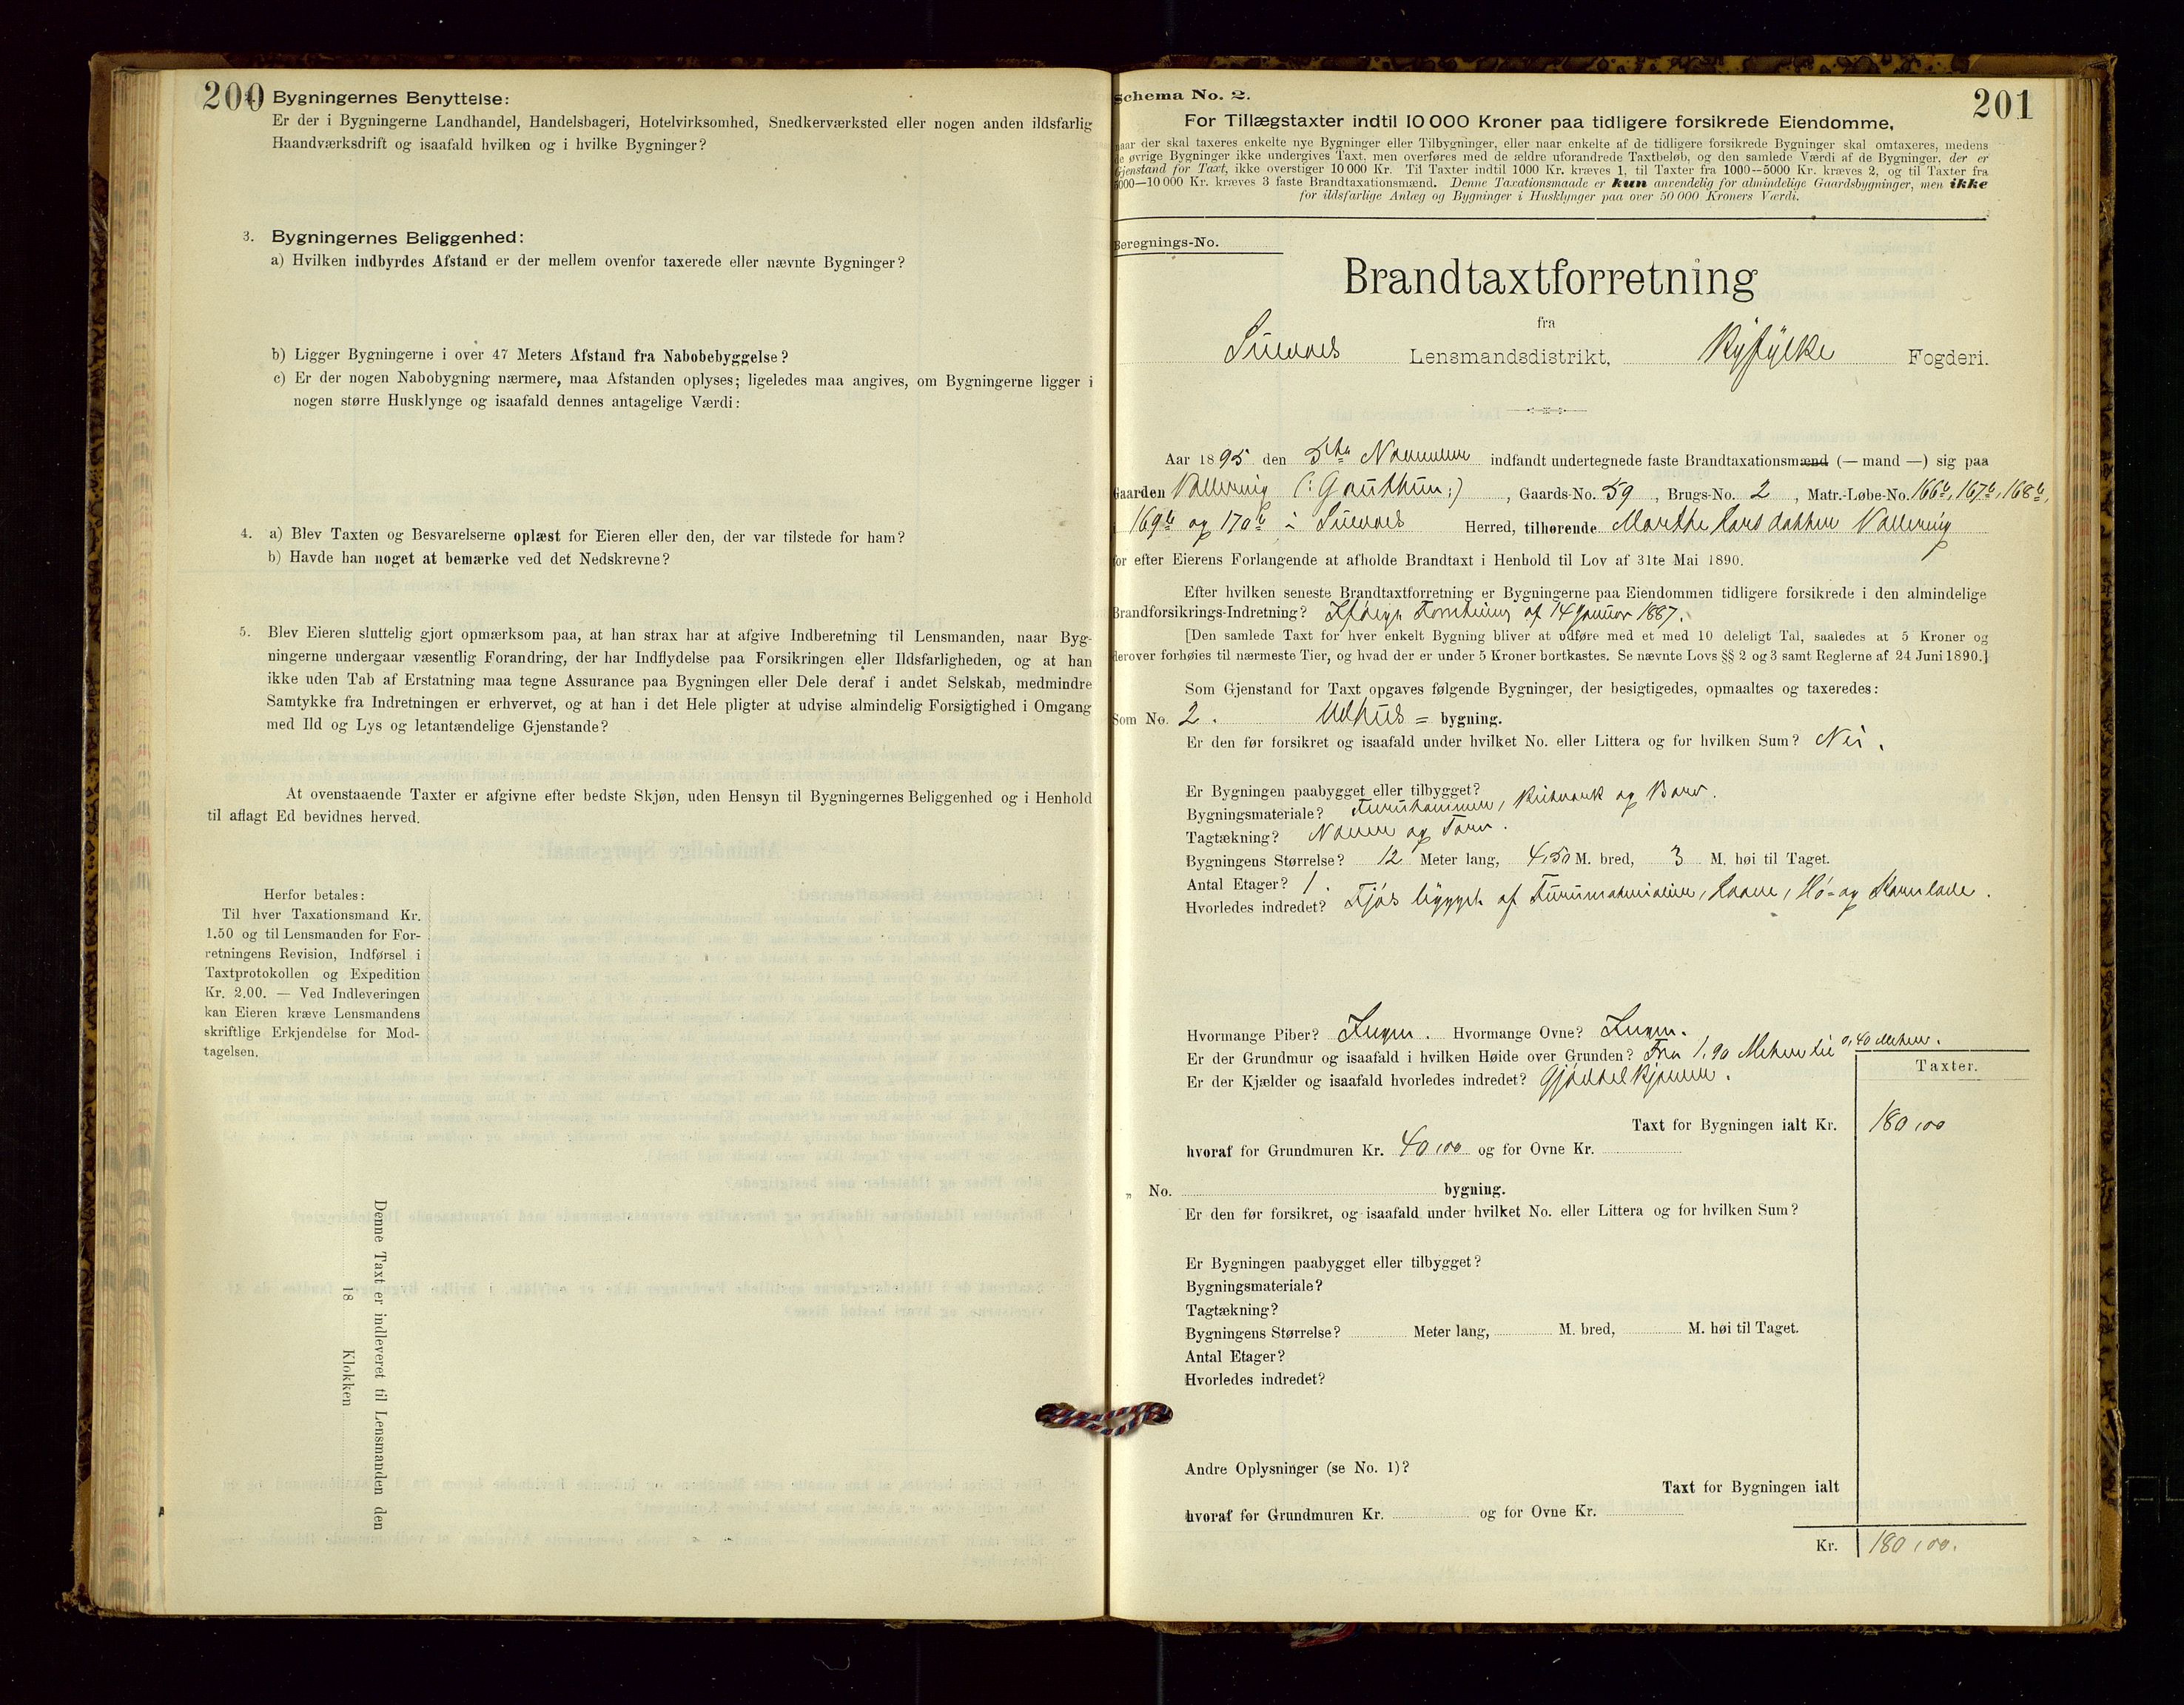 200 Bygningernes Benyttelse:
Er der i Bygningerne Landhandel, Handelsbageri, Hotelvirksomhed, Snedkerværksted eller nogen anden ildsfarlig
Haandværksdrift og isaafald hvilken og i hvilke Bygninger?
3. Bygningernes Beliggenhed:
a) Hvilken indbyrdes Afstand er der mellem ovenfor taxerede eller nævnte Bygninger?
b) Ligger Bygningerne i over 47 Meters Afstand fra Nabobebyggelse?
c) Er der nogen Nabobygning nærmere, maa Afstanden oplyses; ligeledes maa angives, om Bygningerne ligger i
nogen større Husklynge og isaafald dennes antagelige Værdi:
4. a) Blev Taxten og Besvarelserne oplæst for Eieren eller den, der var tilstede for ham?
b) Havde han noget at bemærke ved det Nedskrevne?
5. Blev Eieren sluttelig gjort opmærksom paa, at han strax har at afgive Indberetning til Lensmanden, naar Byg-
ningerne undergaar væsentlig Forandring, der har Indflydelse paa Forsikringen eller Ildsfarligheden, og at han
ikke uden Tab af Erstatning maa tegne Assurance paa Bygningen eller Dele deraf i andet Selskab, medmindre
Samtykke fra Indretningen er erhvervet, og at han i det Hele pligter at udvise almindelig Forsigtighed i Omgang
med Ild og Lys og letantændelige Gjenstande?
At ovenstaaende Taxter er afgivne efter bedste Skjøn, uden Hensyn til Bygningernes Beliggenhed og i Henhold
til aflagt Ed bevidnes herved.
Herfor betales:
Til hver Taxationsmand Kr.
1.50 og til Lensmanden for For-
retningens Revision, Indførsel i
Taxtprotokollen og Expedition
Kr. 2.00. — Ved Indleveringen
kan Eieren kræve Lensmandens
skriftlige Erkjendelse for Mod-
tagelsen.
Denne Taxt er indleveret til Lensmanden den
18 Klokken
Schema No. 2. 201
For Tillægstaxter indtil 10 000 Kroner paa tidligere forsikrede Eiendomme,
naar der skal taxeres enkelte nye Bygninger eller Tilbygninger, eller naar enkelte af de tidligere forsikrede Bygninger skal omtaxeres, medens
de øvrige Bygninger ikke undergives Taxt, men overføres med de ældre uforandrede Taxtbeløb, og den samlede Værdi af de Bygninger, der er
Gjenstand for Taxt, ikke overstiger 10 000 Kr. Til Taxter indtil 1000 Kr. kræves 1, til Taxter fra 1000—5000 Kr. kræves 2, og til Taxter fra
5000—10 000 Kr. kræves 3 faste Brandtaxationsmænd. Denne Taxationsmaade er kun anvendelig for almindelige Gaardsbygninger, men ikke
for ildsfarlige Anlæg og Bygninger i Husklynger paa over 50 000 Kroners Værdi.
Beregnings-No.
Brandtaxtforretning
fra
Lensmandsdistrikt, Ryfylke Fogderi.
Aar 1895 den 5te November indfandt undertegnede faste Brandtaxationsmænd (— mand —) sig paa
Gaarden , Gaards-No. 59 , Brugs-No. 2 , Matr.-Løbe-No. 166b, 167b, 168b,
169b og 170b i Herred, tilhørende Marthe Larsdatter
for efter Eierens Forlangende at afholde Brandtaxt i Henhold til Lov af 31te Mai 1890.
Efter hvilken seneste Brandtaxtforretning er Bygningerne paa Eiendommen tidligere forsikrede i den almindelige
Brandforsikrings-Indretning? Ifølge Forretning af 14 Januar 1887.
[Den samlede Taxt for hver enkelt Bygning bliver at udføre med et med 10 deleligt Tal, saaledes at 5 Kroner og
derover forhøies til nærmeste Tier, og hvad der er under 5 Kroner bortkastes. Se nævnte Lovs §§ 2 og 3 samt Reglerne af 24 Juni 1890.]
Som Gjenstand for Taxt opgaves følgende Bygninger, der besigtigedes, opmaaltes og taxeredes:
Som No. 2. Udhus = bygning.
Er den før forsikret og isaafald under hvilket No. eller Littera og for hvilken Sum? Nei.
Er Bygningen paabygget eller tilbygget?
Bygningsmateriale? og Bord.
Tagtækning? Næver og Torv.
Bygningens Størrelse? 12 Meter lang, 4,50 M. bred, 3 M. høi til Taget.
Antal Etager? 1.
Hvorledes indredet? Fjøs bygget af Furumaterialier, Laave, Hø- og Kornlade.
Hvormange Piber? Ingen. Hvormange Ovne? Ingen.
Er der Grundmur og isaafald i hvilken Høide over Grunden? Fra 1,90 Meter til 0,40 Meter.
Er der Kjælder og isaafald hvorledes indredet? Gjødselkjælder.
Taxter.
Taxt for Bygningen ialt Kr. 180,00
hvoraf for Grundmuren Kr. 40,00 og for Ovne Kr.
„ No. bygning.
Er den før forsikret, og isaafald under hvilket No. eller Littera og for hvilken Sum?
Er Bygningen paabygget eller tilbygget?
Bygningsmateriale?
Tagtækning?
Bygningens Størrelse? Meter lang, M. bred, M. høi til Taget.
Antal Etager?
Hvorledes indredet?
Andre Oplysninger (se No. 1)?
Taxt for Bygningen ialt
hvoraf for Grundmuren Kr. og for Ovne Kr.
Kr. 180,00.